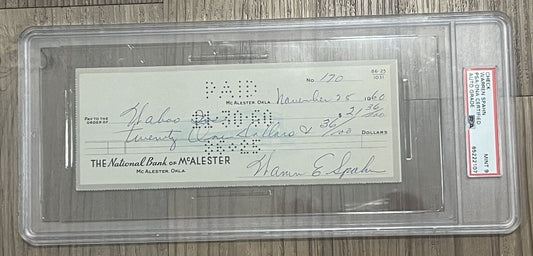 CHECK
WARREN SPAHN
PSA/DNA CERTIFIED
AUTO GRADE
MINT 9
PSA
85222107
PAID
No 170
86-25
1031
McALESTER, OKLA. November 25 1960
PAY TO THE
ORDER OF Wahoo $21 36/100
11·30·60
Twenty One Dollars & 36/100 DOLLARS
86-25
THE National Bank OF McALESTER
McALESTER, OKLA.
Warren E Spahn